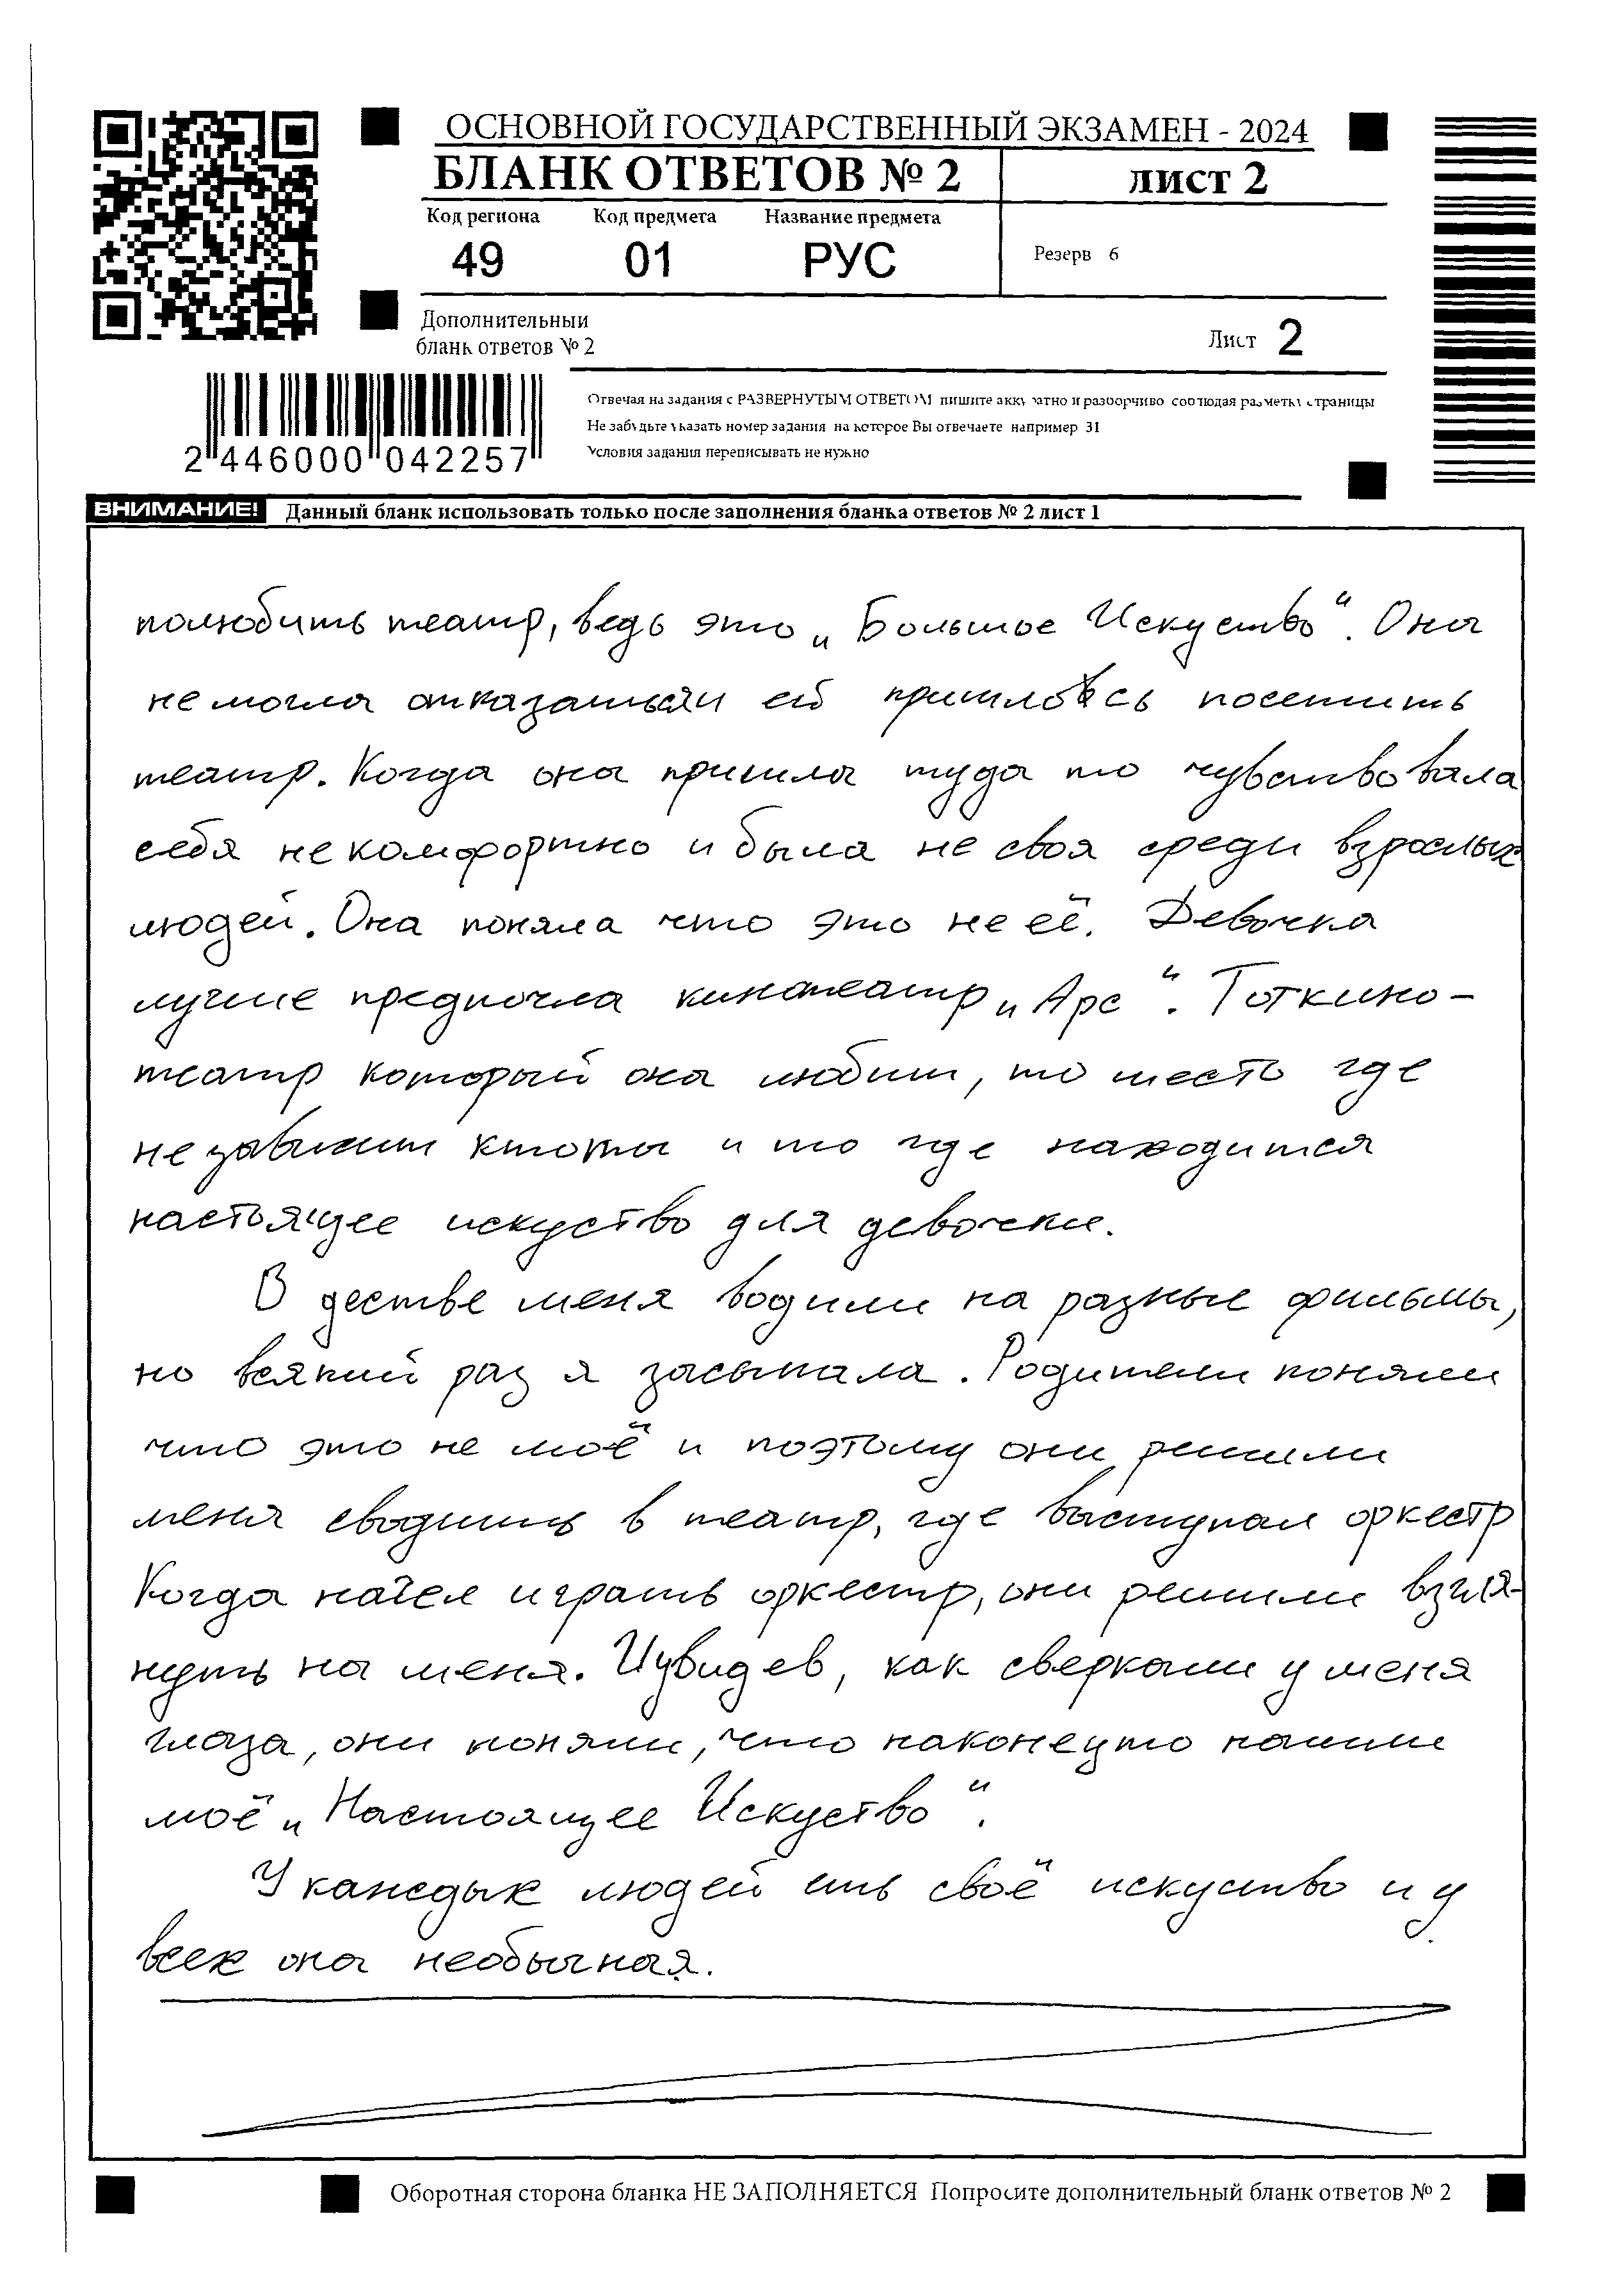 ОСНОВНОЙ ГОСУДАРСТВЕННЫЙ ЭКЗАМЕН - 2024
БЛАНК ОТВЕТОВ № 2
лист 2
Код региона Код предмета Название предмета
49 01 РУС
Резерв 6
Дополнительный
бланк ответов № 2
Лист 2
Отвечая на задания с РАЗВЕРНУТЫМ ОТВЕТОМ пишите аккуратно и разборчиво соблюдая разметку страницы
Не забудьте указать номер задания на которое Вы отвечаете например 31
Условия задания переписывать не нужно
2 446000 042257
ВНИМАНИЕ! Данный бланк использовать только после заполнения бланка ответов № 2 лист 1
полюбить театр, ведь это „Большое Искуство“. Она
не могла отказаться и ей пришлось посетить
театр. Когда она пришла туда то чувствовала
себя не комфортно и была не своя среди взрослых
людей. Она поняла что это не её. Девочка
лучше предпочла кинотеатр „Арс“. Тот кино-
театр который она любит, то место где
не зависит ктоты и то где находится
настоящее искуство для девочки.
В дестве меня водили на разные фильмы,
но всякий раз я засыпала. Родители поняли
что это не моё и поэтому они решили
меня сводить в театр, где выступал оркестр
Когда начел играть оркестр, они решили взгля-
нуть на меня. И увидев, как сверкали у меня
глаза, они поняли, что наконецто нашли
моё „Настоящее Искуство“.
У каждых людей есть своё искуство и у
всех она необычная.
Оборотная сторона бланка НЕ ЗАПОЛНЯЕТСЯ Попросите дополнительный бланк ответов № 2